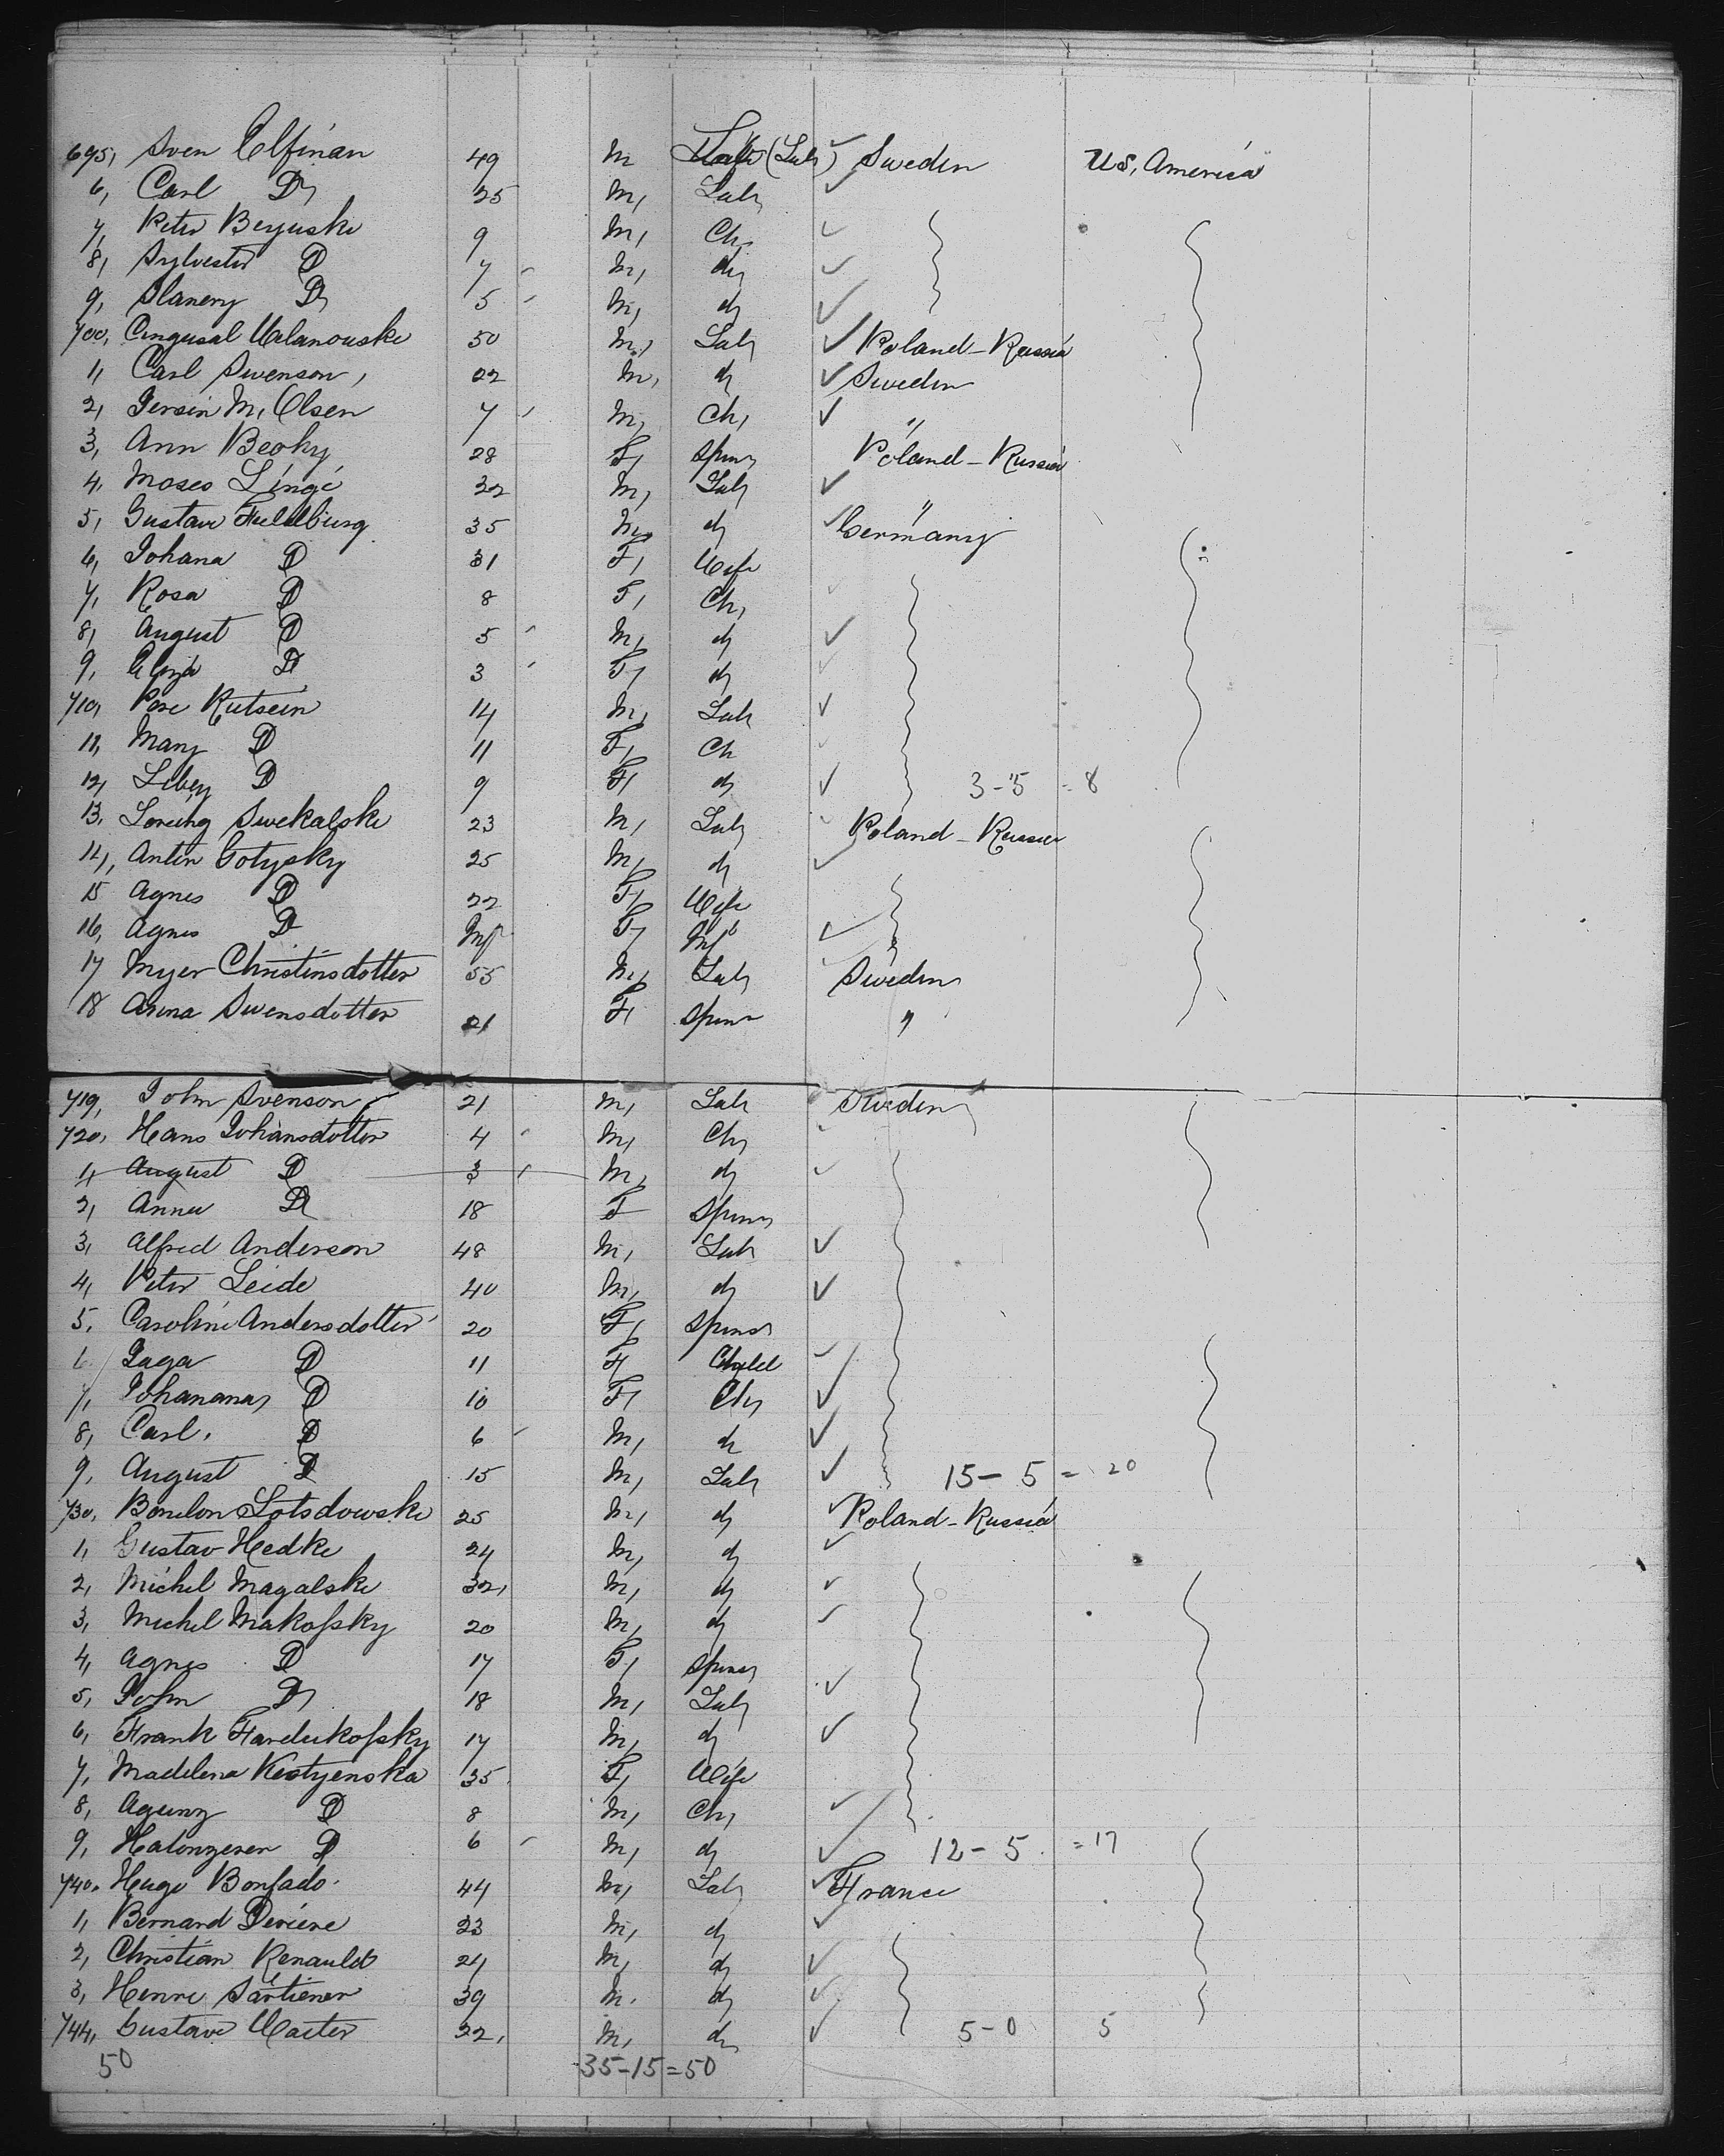 695, Sven Elfinan 49 M (Lab) Sweden US, America
6, Carl D 25 M, Lab,
7, Peter Beryuske 9 M, Ch,
8, Sylvester D 7 M, do,
9, Slaneny D 5 M, do
700, Cingusal Urlanouske 50 M, Lab, Poland - Russia
1, Carl Swenson, 22 M, do Sweden
2, Persin M, Olsen 7 M, Ch, "
3, Ann Beoky 28 F, Spins, Poland - Russia
4, Moses Lingé 32 M, Lab, "
5, Gustave Fueldburg 35 M, do Germany
6, Johana D 31 F, Wife
7, Rosa D 8 F, Ch,
8, August D 5 M, do
9, Eliza D 3 F, do
710, Kutsein 14 M, Lab
11, Mary D 11 F, Ch
12, Libey D 9 F, do 3 - 5 = 8
13, Loreing Swekalske 23 M, Lab, Poland - Russia
14, Anten Gotysky 25 M, do
15 Agnes D 22 F, Wife
16, Agnes D Inf F, Inft
17 Myer Christinsdotter 55 M, Lab, Sweden
18 Anna Swensdotter 21 F, Spins "
719, John Svenson, 21 M, Lab Sweden
720, Hans Johansdotter 4 M, Ch,
1, August D 3 M, do
2, Anna D 18 F Spins,
3, Alfred Anderson 48 M, Lab
4, Peter Leide 40 M, do
5, Caroline Andersdotter 20 F, Spins
6 Jaga D 11 F, Child
7, Johanana, D 10 F, Ch,
8, Carl, D 6 M, do
9, August D 15 M, Lab, 15 - 5 = 20
730, Bonelon Lotsdowske 25 M, do Poland - Russia
1, Gustav Hedke 24 M, do
2, Michel Magalske 32, M, do
3, Michel Makofsky 20 M, do
4, Agnes D 17 F, Spins,
5, John D, 18 M, Lab,
6, Frank Fardukofsky 17 M, do
7, Madelena Kestyenska 35 F, Wife
8, Aguny D 8 M, Ch,
9, Halonzeren D 6 M, do 12 - 5 = 17
740, Hugo Bonfado 44 M, Lab, France
1, Bernard Deriene 23 M, do
2, Christian Renauld 24 M, do
3, Henri Sartiener 39 M. do
744, Gustave Waiter 22, M, do 5 - 0 5
50 35 - 15 = 50